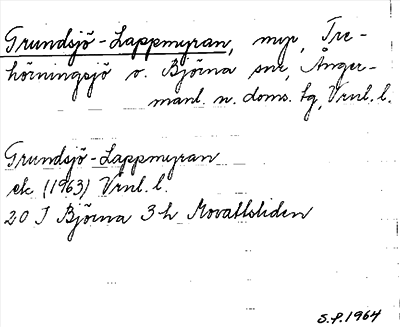 Grundsjö-Lappmyran, myr, Tre-
hörningsjö o. Björna snr, Ånger-
manl. n. doms. tg, Vrnl. l.
Grundsjö-Lappmyran
ek (1963) Vrnl. l.
20 I Björna 3h Movattsliden
S.P. 1964